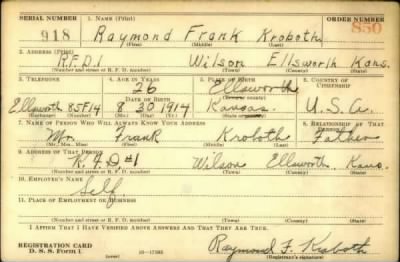 SERIAL NUMBER 1. NAME (Print) ORDER NUMBER
918 Raymond Frank Kroboth 850
(First) (Middle) (Last)
2. ADDRESS (Print)
R.F.D.1 Wilson Ellsworth Kans.
(Number and street or R. F. D. number) (Town) (County) (State)
3. TELEPHONE 4. AGE IN YEARS 5. PLACE OF BIRTH 6. COUNTRY OF CITIZENSHIP
26 Ellsworth
DATE OF BIRTH (Town or county)
Ellsworth 85F14 8 30 1914 Kansas. U.S.A.
(Exchange) (Number) (Mo.) (Day) (Yr.) (State or country)
7. NAME OF PERSON WHO WILL ALWAYS KNOW YOUR ADDRESS 8. RELATIONSHIP OF THAT PERSON
Mr. Frank Kroboth Father
(Mr., Mrs., Miss) (First) (Middle) (Last)
9. ADDRESS OF THAT PERSON
R.F.D#1 Wilson Ellsworth, Kans.
(Number and street or R. F. D. number) (Town) (County) (State)
10. EMPLOYER'S NAME
Self
11. PLACE OF EMPLOYMENT OR BUSINESS
(Number and street or R. F. D. number) (Town) (County) (State)
I AFFIRM THAT I HAVE VERIFIED ABOVE ANSWERS AND THAT THEY ARE TRUE.
REGISTRATION CARD
D. S. S. Form 1 (over) Raymond F. Kroboth
(Registrant's signature)